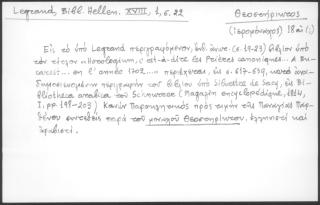 Legrand, Bibl. Hellen. XVIII, 1, σ. 22
Θεοστήρικτος
(ἱερομόναχος) 18 αἰ (;)
Εἰς τὸ ὑπὸ Legrand περιγραφόμενον, ἐνθ. ἄνωτ. (σ. 19-23) βιβλίον ὑπὸ
τὸν τίτλον «Horologium, c'est-à-dire les Prières canoniques... A Bu-
carest... en l'année 1702...» περιέχεται, εἰς σ. 617-639, κατὰ
περιγραφὴν τοῦ βιβλίου ὑπὸ Silvestre de Sacy, εἰς Bi-
bliotheca arabica τοῦ Schnurrer (Magasin encyclopédique, 1814,
I, pp. 198-203) Κανὼν Παρακλητικὸς πρὸς τιμὴν τῆς Παναγίας Παρ-
θένου συντεθεὶς παρὰ τοῦ μοναχοῦ Θεοστηρίκτου, ἑλληνιστὶ καὶ
ἀραβιστί.